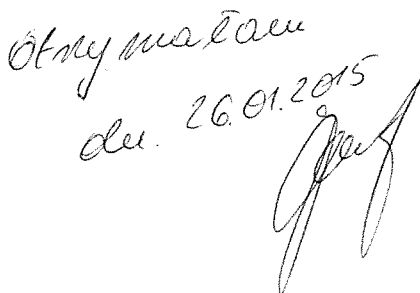 Otrzymałam
dn. 26.01.2015